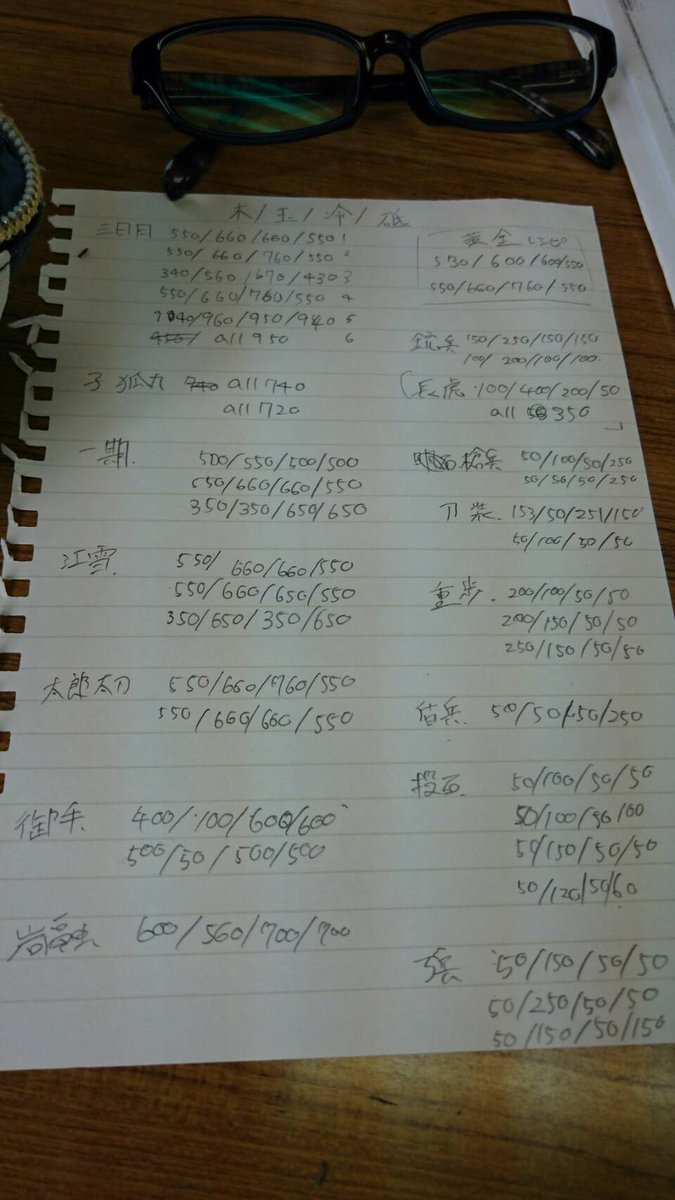 木/玉/冷/砥
三日月 550/660/600/550 1
550/660/760/550 2
340/560/670/430 3
550/660/760/550 4
940/960/950/940 5
all 950 6
子狐丸 all 740
all 720
一期 500/550/500/500
550/660/660/550
350/350/650/650
江雪 550/660/660/550
550/660/650/550
350/650/350/650
太郎太刀 550/660/760/550
550/660/660/550
御手 400/100/600/600
500/50/500/500
岩融 600/560/700/700
黄金レシピ
530/600/600/550
550/660/760/550
銃兵 150/250/150/150
100/200/100/100
長虎 100/400/200/50
all 350
槍兵 50/100/50/250
50/50/50/250
刀装 153/50/251/150
50/100/50/50
重歩 200/100/50/50
200/150/50/50
250/150/50/50
盾兵 50/50/50/250
投石 50/100/50/50
50/100/50/100
50/150/50/50
50/120/50/60
弓兵 50/150/50/50
50/250/50/50
50/150/50/150